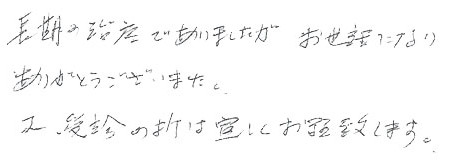 長期の治療でありましたが お世話になり
ありがとうございました。
又、後診の折は宜しくお願致します。